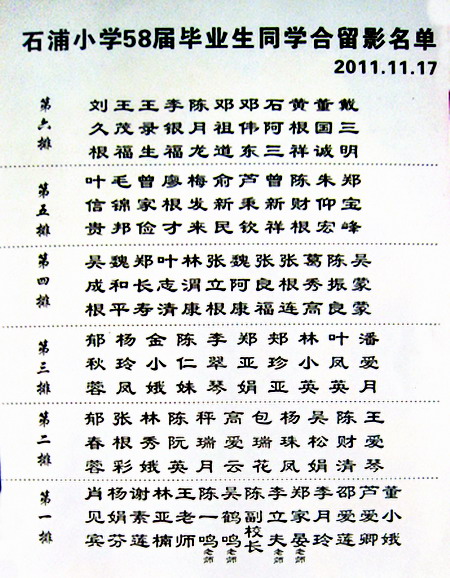 石浦小学58届毕业生同学合留影名单
2011.11.17
第六排
刘久根 王茂福 王录生 李银福 陈月龙 邓祖道 邓伟东 石阿三 黄根祥 董国诚 戴三明
第五排
叶信贵 毛锦邦 曾家俭 廖根才 梅发来 俞新民 芦秉钦 曾新祥 陈财根 朱仰宏 郑宝峰
第四排
吴成根 魏和平 郑长寿 叶志清 林渭康 张立根 魏阿康 张良福 张根连 葛秀高 陈振良 吴蒙蒙
第三排
郁秋蓉 杨玲凤 金小娥 陈仁妹 李翠琴 郑亚娟 郏珍亚 林小英 叶凤英 潘爱月
第二排
郁春蓉 张根彩 林秀娥 陈阮英 秤瑞月 高爱云 包瑞花 杨珠凤 吴松娟 陈财清 王爱琴
第一排
肖见宾 杨娟芬 谢素莲 林亚楠 王老师 陈一鸣老师 吴鹤鸣老师 陈副校长 李立夫老师 郑家晏老师 李月玲 邵爱莲 芦爱卿 董小娥